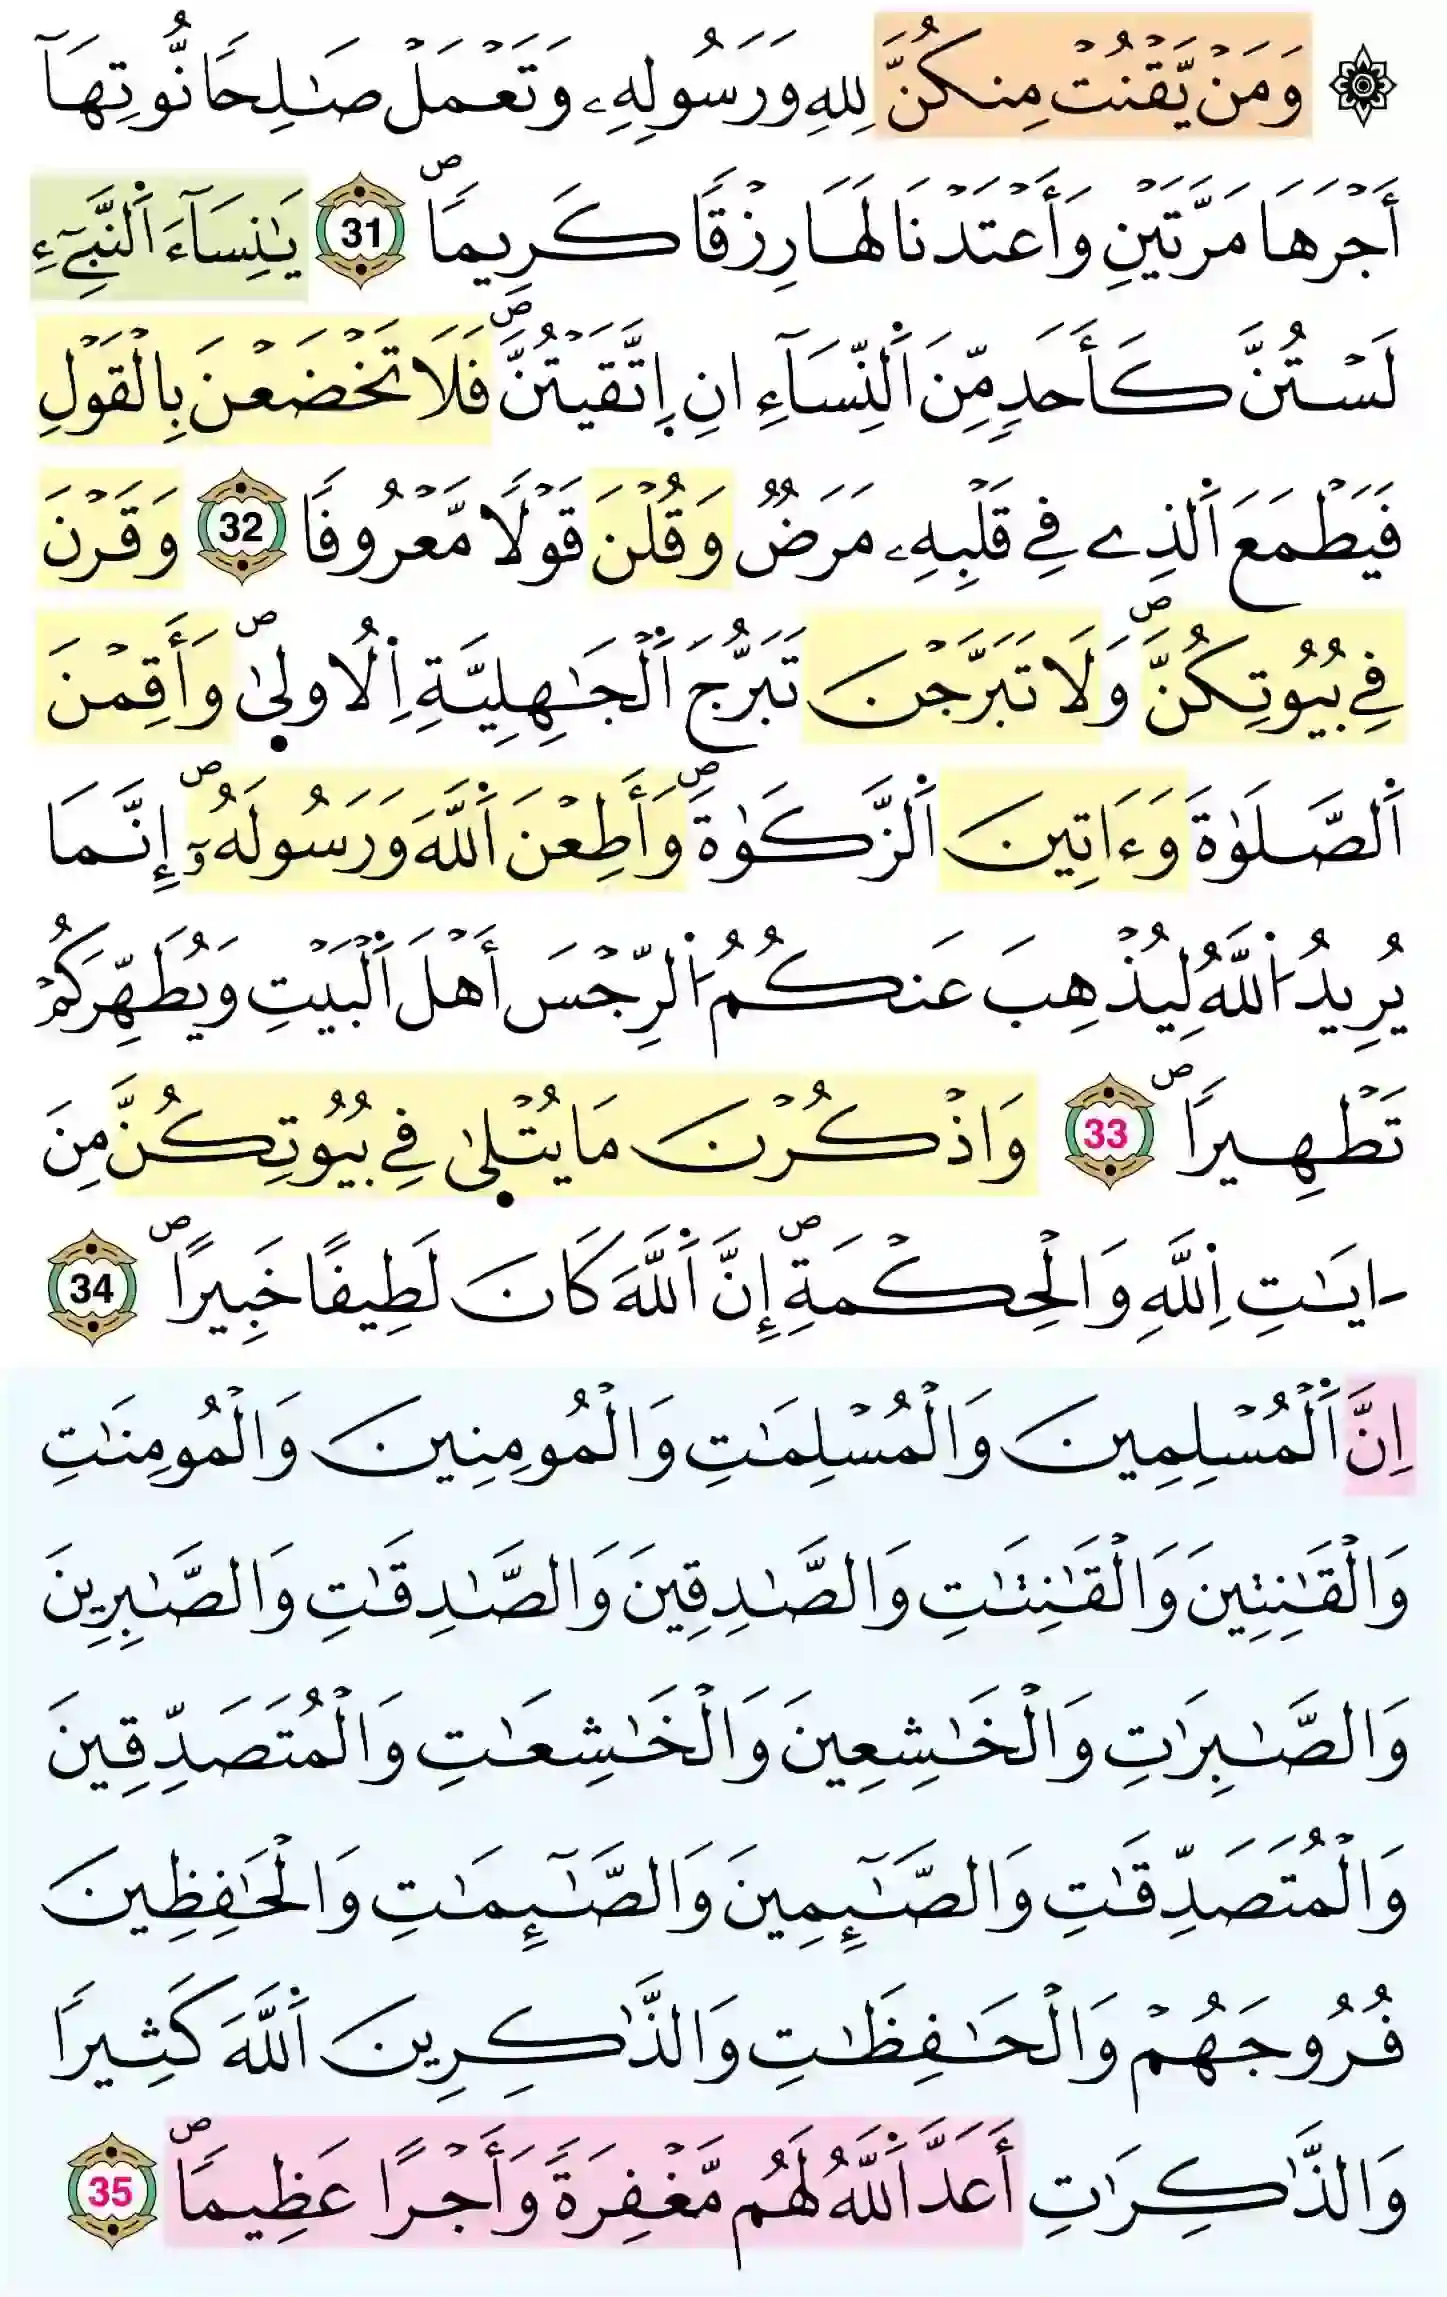 ۞ وَمَنْ يَّقْنُتْ مِنكُنَّ لِلهِ وَرَسُولِهِۦ وَتَعْمَلْ صَٰلِحاً نُّوتِهَآ
أَجْرَهَا مَرَّتَيْنِ وَأَعْتَدْنَا لَهَا رِزْقاً كَرِيماًۖ 31 يَٰنِسَآءَ اَ۬لنَّبِےٓءِ
لَسْتُنَّ كَأَحَدٖ مِّنَ اَ۬لنِّسَآءِ انِ اِ۪تَّقَيْتُنَّۖ فَلَا تَخْضَعْنَ بِالْقَوْلِ
فَيَطْمَعَ اَ۬لذِے فِے قَلْبِهِۦ مَرَضٞ وَقُلْنَ قَوْلاً مَّعْرُوفاً 32 وَقَرْنَ
فِے بُيُوتِكُنَّۖ وَلَا تَبَرَّجْنَ تَبَرُّجَ اَ۬لْجَٰهِلِيَّةِ اِ۬لُاول۪ىٰۖ وَأَقِمْنَ
اَ۬لصَّلَوٰةَ وَءَاتِينَ اَ۬لزَّكَوٰةَۖ وَأَطِعْنَ اَ۬للَّهَ وَرَسُولَهُۥٓۖ إِنَّمَا
يُرِيدُ اُ۬للَّهُ لِيُذْهِبَ عَنكُمُ اُ۬لرِّجْسَ أَهْلَ اَ۬لْبَيْتِ وَيُطَهِّرَكُمْ
تَطْهِيراًۖ 33 وَاذْكُرْنَ مَا يُتْل۪ىٰ فِے بُيُوتِكُنَّ مِنَ
ـ۬ايَٰتِ اِ۬للَّهِ وَالْحِكْمَةِۖ إِنَّ اَ۬للَّهَ كَانَ لَطِيفاً خَبِيراًۖ 34
اِنَّ اَ۬لْمُسْلِمِينَ وَالْمُسْلِمَٰتِ وَالْمُومِنِينَ وَالْمُومِنَٰتِ
وَالْقَٰنِتِينَ وَالْقَٰنِتَٰتِ وَالصَّٰدِقِينَ وَالصَّٰدِقَٰتِ وَالصَّٰبِرِينَ
وَالصَّٰبِرَٰتِ وَالْخَٰشِعِينَ وَالْخَٰشِعَٰتِ وَالْمُتَصَدِّقِينَ
وَالْمُتَصَدِّقَٰتِ وَالصَّٰٓئِمِينَ وَالصَّٰٓئِمَٰتِ وَالْحَٰفِظِينَ
فُرُوجَهُمْ وَالْحَٰفِظَٰتِ وَالذَّٰكِرِينَ اَ۬للَّهَ كَثِيراً
وَالذَّٰكِرَٰتِ أَعَدَّ اَ۬للَّهُ لَهُم مَّغْفِرَةٗ وَأَجْراً عَظِيماًۖ 35